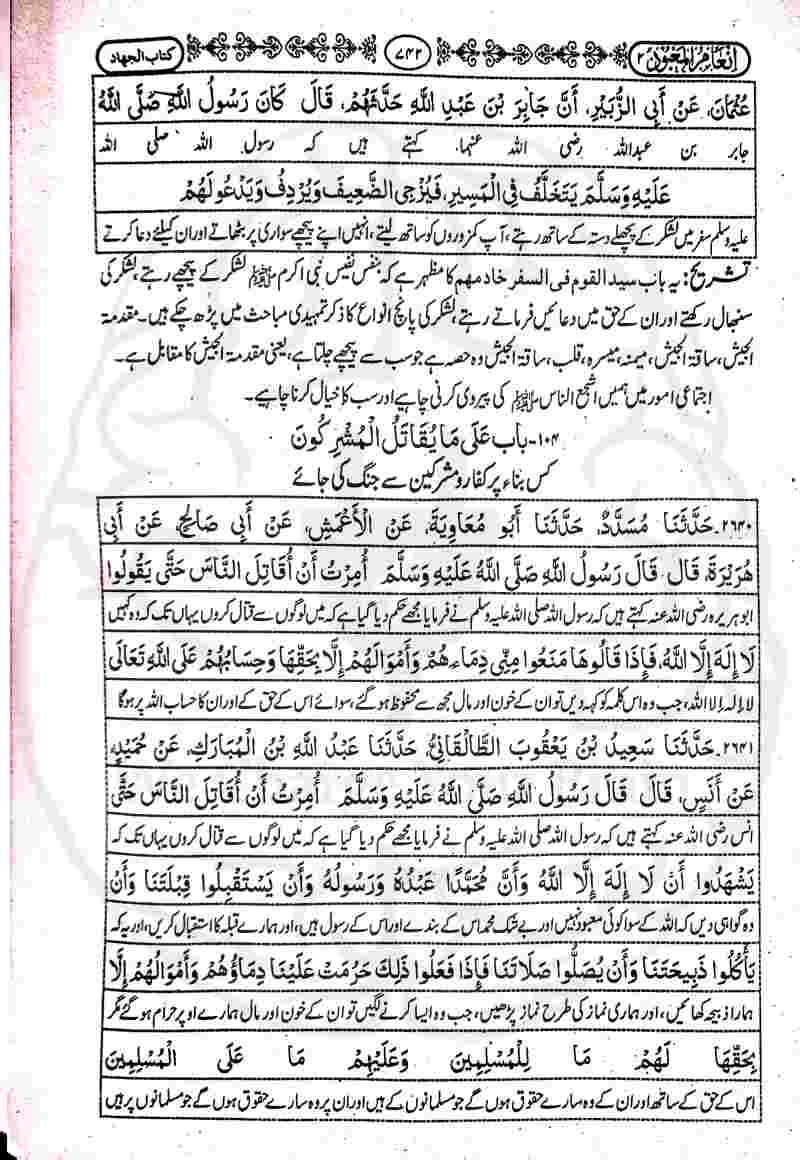 کتاب الجهاد ۷۴۲ اِنعام المعبود ۲
عُثْمَانَ، عَنْ أَبِي الزُّبَيْرِ، أَنَّ جَابِرَ بْنَ عَبْدِ اللَّهِ حَدَّثَهُمْ، قَالَ كَانَ رَسُولُ اللَّهِ صَلَّى اللَّهُ
جابر بن عبداللہ رضی اللہ عنہما کہتے ہیں کہ رسول اللہ صلی اللہ
عَلَيْهِ وَسَلَّمَ يَتَخَلَّفُ فِي الْمَسِيرِ، فَيُزْجِي الضَّعِيفَ وَيُرْدِفُ وَيَدْعُو لَهُمْ
علیہ وسلم سفر میں لشکر کے پچھلے دستہ کے ساتھ رہتے، آپ کمزوروں کو ساتھ لیتے، انہیں اپنے پیچھے سواری پر بٹھاتے اور ان کیلئے دعا کرتے
تشریح: یہ باب سید القوم فی السفر خادمهم کا مظہر ہے کہ بنفس نفیس نبی اکرم ﷺ لشکر کے پیچھے رہتے، لشکر کی
سنبھال رکھتے اور ان کے حق میں دعائیں فرماتے رہتے، لشکر کی پانچ انواع کا ذکر تمہیدی مباحث میں پڑھ چکے ہیں۔ مقدمۃ
الجیش، ساقۃ الجیش، میمنہ، میسرہ، قلب، ساقۃ الجیش وہ حصہ ہے جو سب سے پیچھے چلتا ہے، یعنی مقدمۃ الجیش کا مقابل ہے۔
اجتماعی امور میں ہمیں اشجع الناس ﷺ کی پیروی کرنی چاہیے اور سب کا خیال کرنا چاہیے۔
۱۰۴- باب عَلَى مَا يُقَاتَلُ الْمُشْرِكُونَ
کس بناء پر کفار و مشرکین سے جنگ کی جائے
۲۶۴۰۔ حَدَّثَنَا مُسَدَّدٌ، حَدَّثَنَا أَبُو مُعَاوِيَةَ، عَنِ الْأَعْمَشِ، عَنْ أَبِي صَالِحٍ، عَنْ أَبِي
هُرَيْرَةَ، قَالَ قَالَ رَسُولُ اللَّهِ صَلَّى اللَّهُ عَلَيْهِ وَسَلَّمَ أُمِرْتُ أَنْ أُقَاتِلَ النَّاسَ حَتَّى يَقُولُوا
ابو ہریرہ رضی اللہ عنہ کہتے ہیں کہ رسول اللہ صلی اللہ علیہ وسلم نے فرمایا مجھے حکم دیا گیا ہے کہ میں لوگوں سے قتال کروں یہاں تک کہ وہ کہیں
لَا إِلَهَ إِلَّا اللَّهُ، فَإِذَا قَالُوهَا مَنَعُوا مِنِّي دِمَاءَهُمْ وَأَمْوَالَهُمْ إِلَّا بِحَقِّهَا وَحِسَابُهُمْ عَلَى اللَّهِ تَعَالَى
لا إلہ إلا اللہ، جب وہ اس کلمہ کو کہہ دیں تو ان کے خون اور مال مجھ سے محفوظ ہو گئے، سوائے اس کے حق کے اور ان کا حساب اللہ پر ہو گا
۲۶۴۱۔ حَدَّثَنَا سَعِيدُ بْنُ يَعْقُوبَ الطَّالْقَانِيُّ، حَدَّثَنَا عَبْدُ اللَّهِ بْنُ الْمُبَارَكِ، عَنْ حُمَيْدٍ
عَنْ أَنَسٍ، قَالَ قَالَ رَسُولُ اللَّهِ صَلَّى اللَّهُ عَلَيْهِ وَسَلَّمَ أُمِرْتُ أَنْ أُقَاتِلَ النَّاسَ حَتَّى
انس رضی اللہ عنہ کہتے ہیں کہ رسول اللہ صلی اللہ علیہ وسلم نے فرمایا مجھے حکم دیا گیا ہے کہ میں لوگوں سے قتال کروں یہاں تک کہ
يَشْهَدُوا أَنْ لَا إِلَهَ إِلَّا اللَّهُ وَأَنَّ مُحَمَّدًا عَبْدُهُ وَرَسُولُهُ وَأَنْ يَسْتَقْبِلُوا قِبْلَتَنَا وَأَنْ
وہ گواہی دیں کہ اللہ کے سوا کوئی معبود نہیں اور بے شک محمد اس کے بندے اور اس کے رسول ہیں، اور ہمارے قبلہ کا استقبال کریں، اور یہ کہ
يَأْكُلُوا ذَبِيحَتَنَا وَأَنْ يُصَلُّوا صَلَاتَنَا فَإِذَا فَعَلُوا ذَلِكَ حَرُمَتْ عَلَيْنَا دِمَاؤُهُمْ وَأَمْوَالُهُمْ إِلَّا
ہمارا ذبیحہ کھائیں، اور ہماری نماز کی طرح نماز پڑھیں، جب وہ ایسا کرنے لگیں تو ان کے خون اور مال ہمارے اوپر حرام ہو گئے مگر
بِحَقِّهَا لَهُمْ مَا لِلْمُسْلِمِينَ وَعَلَيْهِمْ مَا عَلَى الْمُسْلِمِينَ
اس کے حق کے ساتھ اور ان کے وہ سارے حقوق ہوں گے جو مسلمانوں کے ہیں اور ان پر وہ سارے حقوق ہوں گے جو مسلمانوں پر ہیں